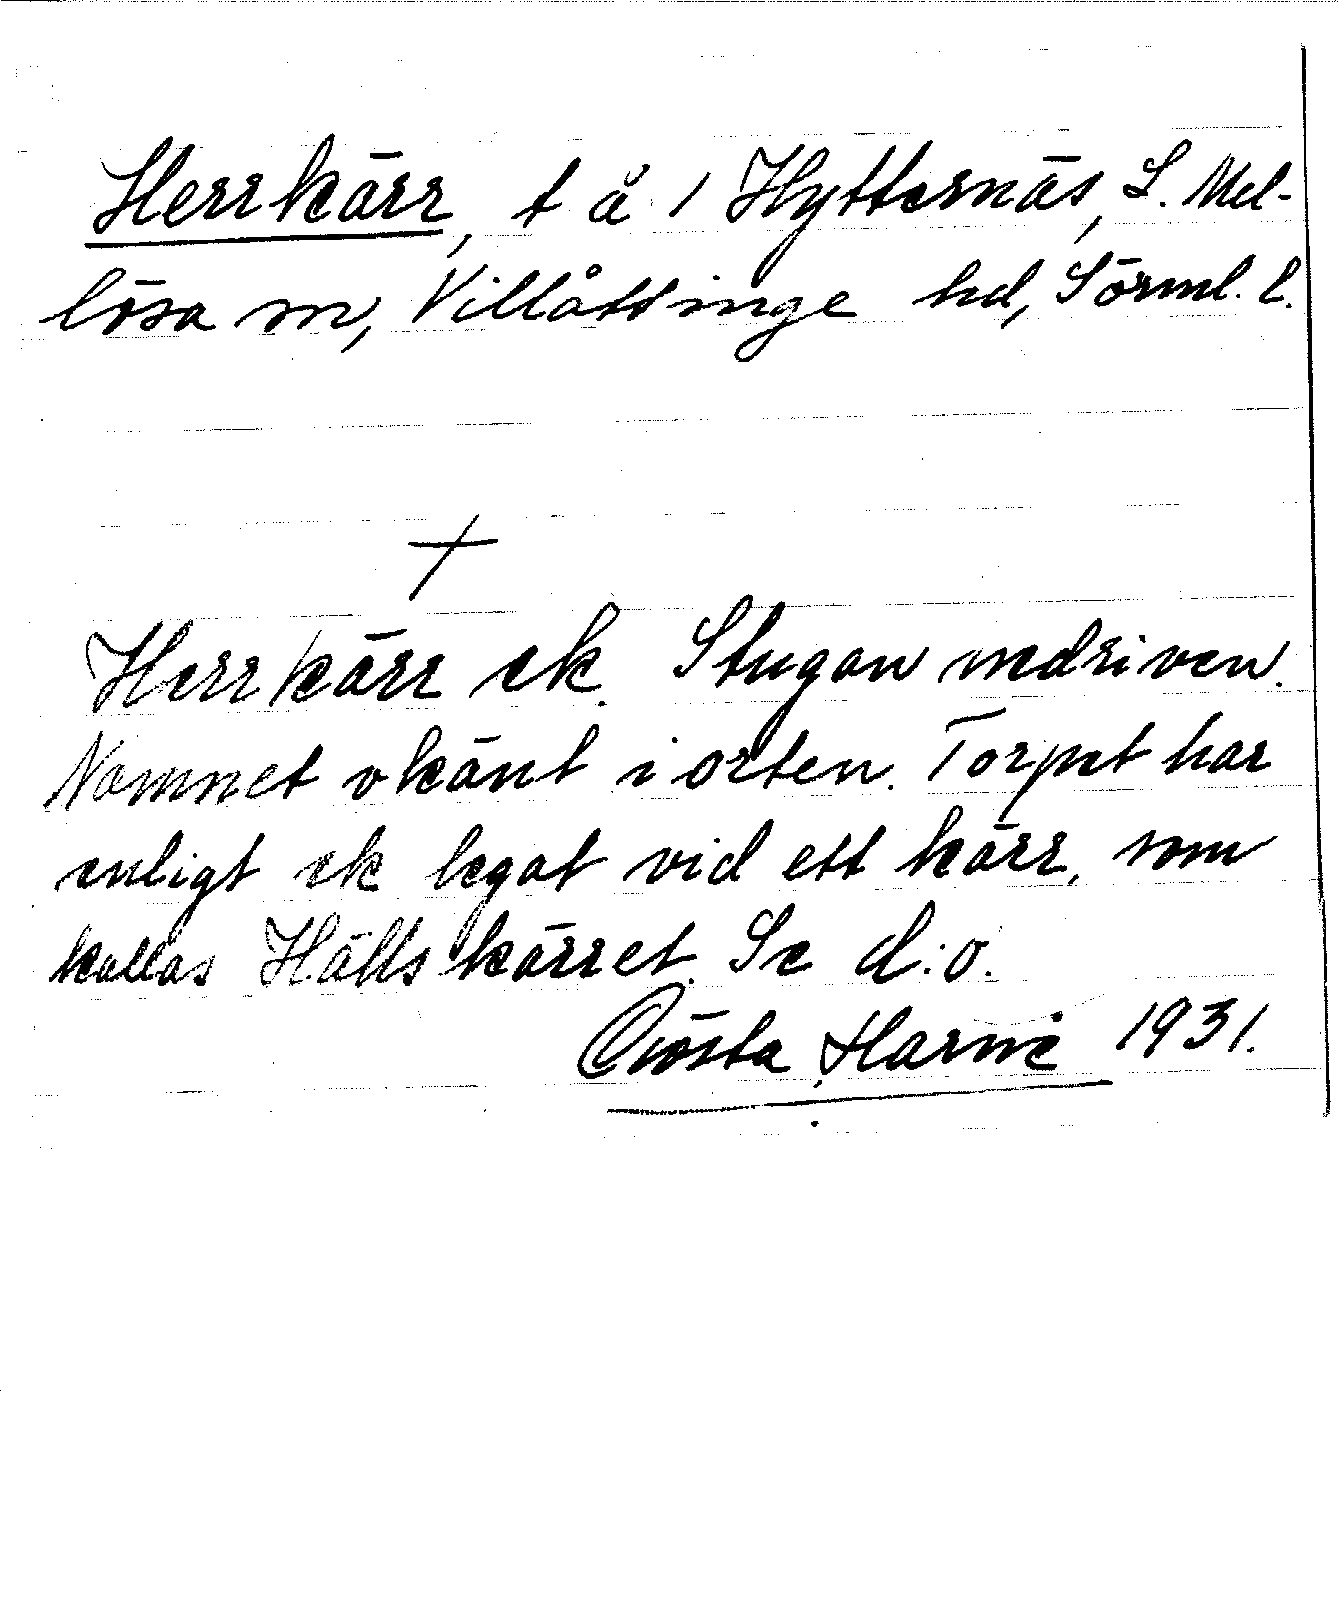 Herrkärr, t å 1 Hytternäs, S. Mel-
lösa sn, Villåttinge hd, Sörml. l.
+
Herrkärr ek. Stugan nedriven.
Namnet okänt i orten. Torpet har
enligt ek legat vid ett kärr, som
kallas Hällskärret. Se d:o.
Gösta Harvië 1931.